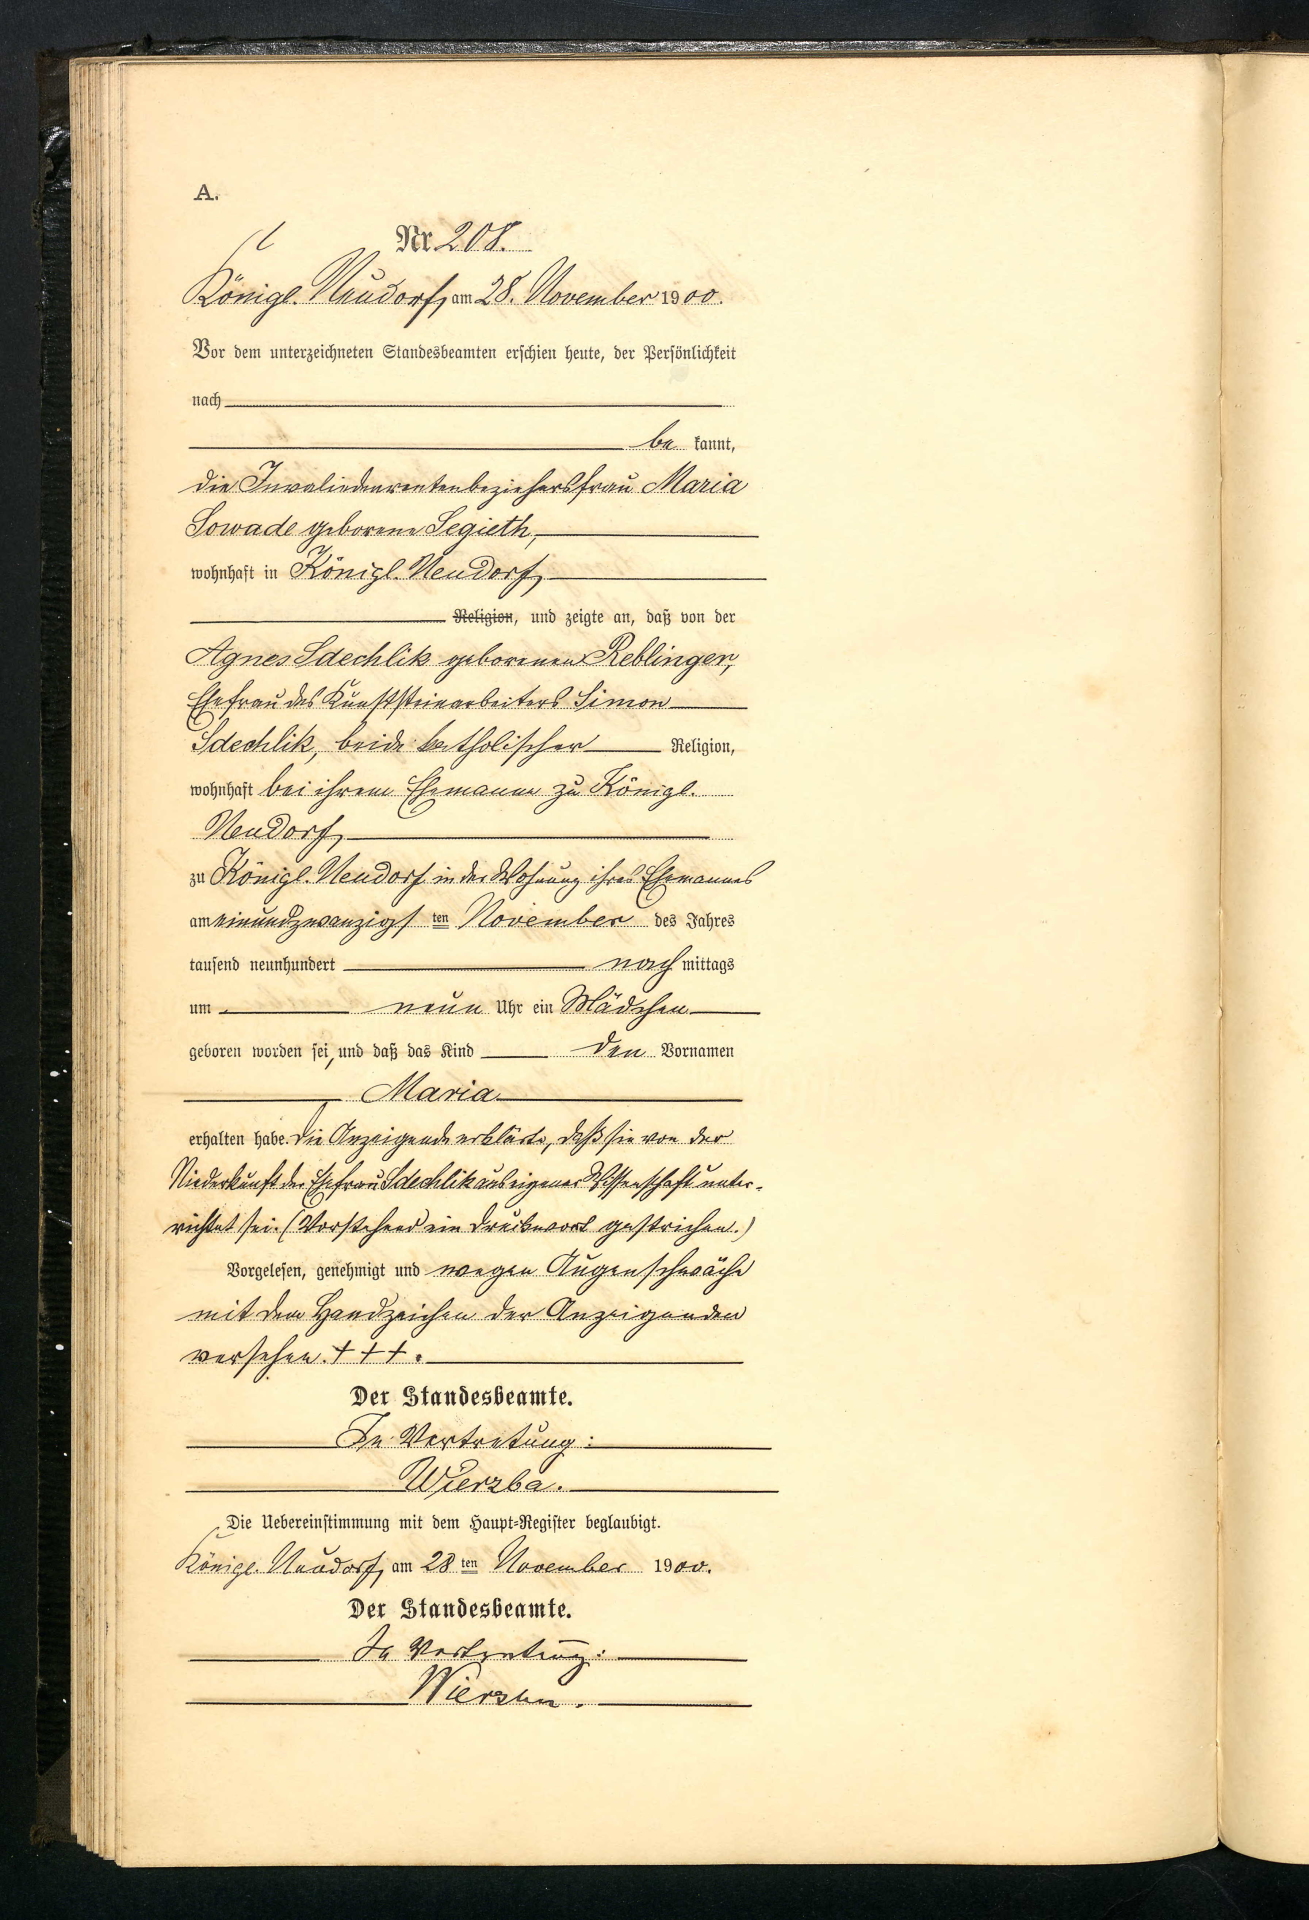 A.
Nr. 208.
Königl. Neudorf, am 28. November 1900.
Vor dem unterzeichneten Standesbeamten erschien heute, der Persönlichkeit
nach
be kannt,
die Invalidenrentenbeziehersfrau Maria
Sowade geborene Segieth,
wohnhaft in Königl. Neudorf,
Religion, und zeigte an, daß von der
Agnes Sdechlik geborenen Reblinger,
Ehefrau des Kunststeinarbeiters Simon
Sdechlik, beide katholischer Religion,
wohnhaft bei ihrem Ehemanne zu Königl.
Neudorf,
zu Königl. Neudorf in der Wohnung ihres Ehemannes
am einundzwanzigs ten November des Jahres
tausend neunhundert nach mittags
um neun Uhr ein Mädchen
geboren worden sei, und daß das Kind den Vornamen
Maria
erhalten habe. Die Anzeigende erklärte, daß sie von der
Niederkunft der Ehefrau Sdechlik aus eigener Wissenschaft unter-
richtet sei. (Vorstehend ein Druckwort gestrichen.)
Vorgelesen, genehmigt und wegen Augenschwäche
mit dem Handzeichen der Anzeigenden
versehen. + + + .
Der Standesbeamte.
In Vertretung:
Wierzba.
Die Uebereinstimmung mit dem Haupt-Register beglaubigt.
Königl. Neudorf, am 28 ten November 1900.
Der Standesbeamte.
In Vertretung:
Wierzba.